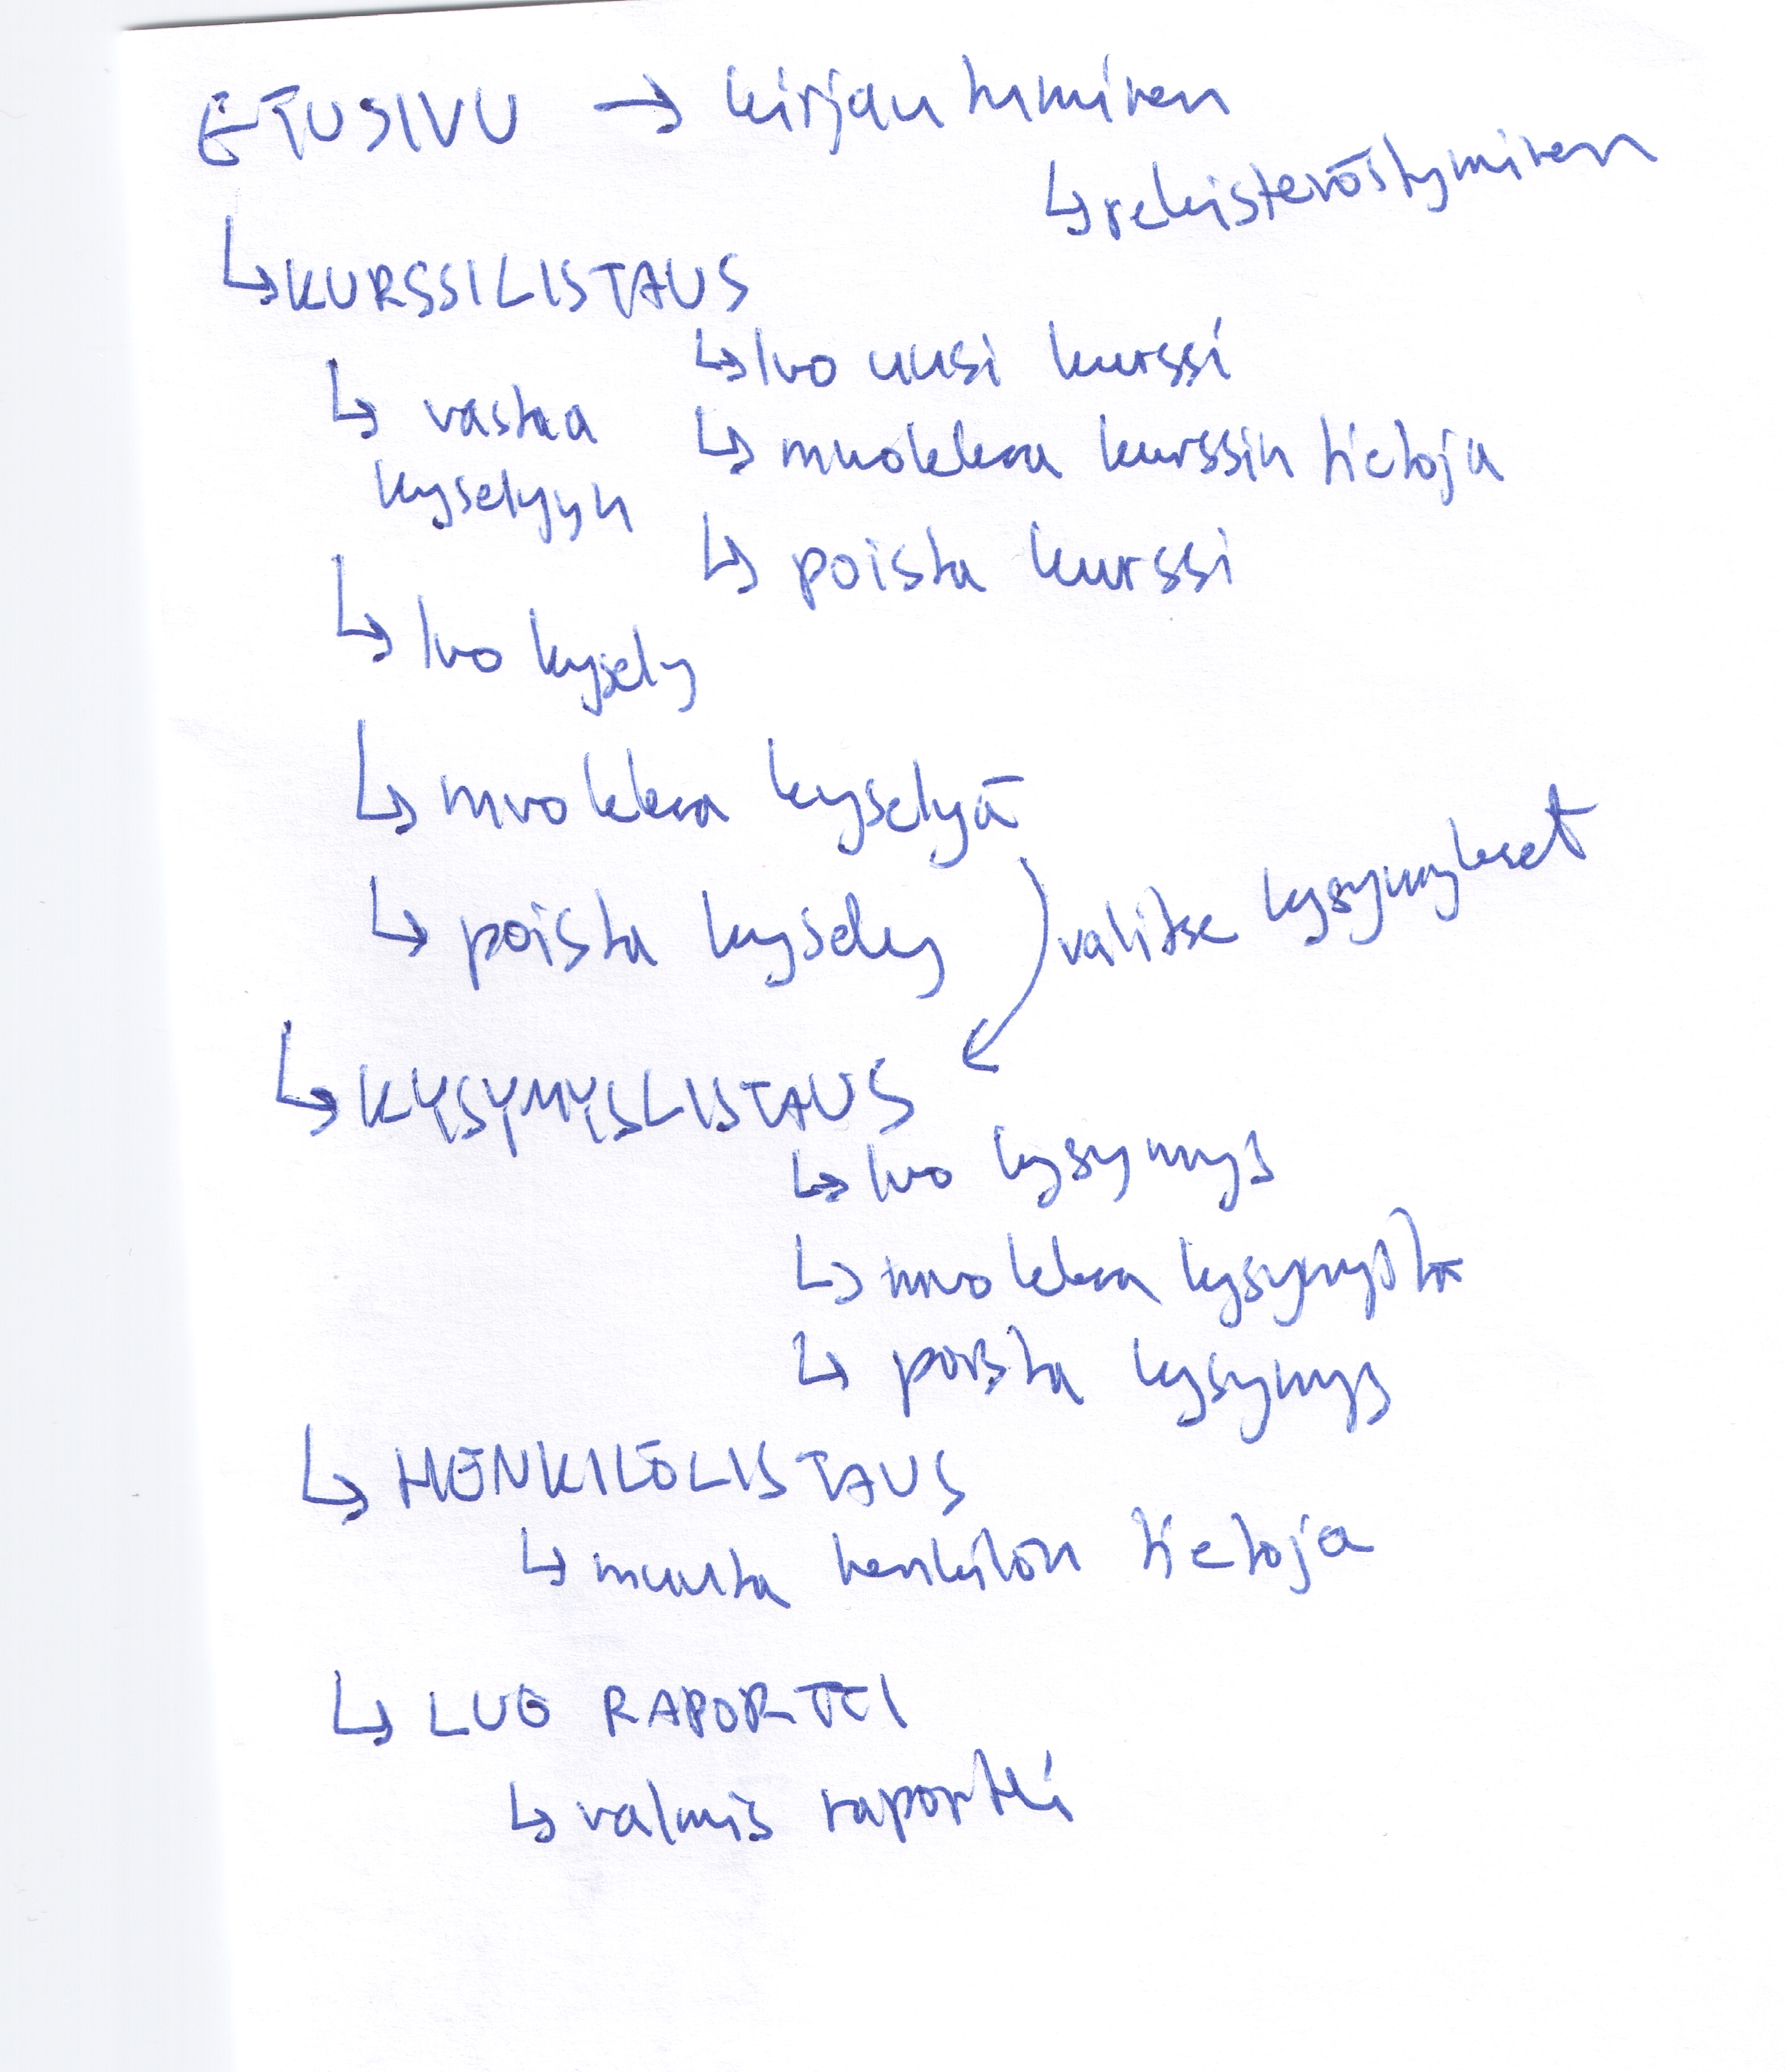 ETUSIVU → kirjautuminen
↳ rekisteröityminen
↳ KURSSILISTAUS
↳ luo uusi kurssi
↳ vastaa
kyselyyn
↳ muokkaa kurssin tietoja
↳ poista kurssi
↳ luo kysely
↳ muokkaa kyselyä
valitse kysymykset
↳ poista kysely
↳ KYSYMYSLISTAUS
↳ luo kysymys
↳ muokkaa kysymystä
↳ poista kysymys
↳ HENKILÖLISTAUS
↳ muuta henkilön tietoja
↳ LUO RAPORTTI
↳ valmis raportti